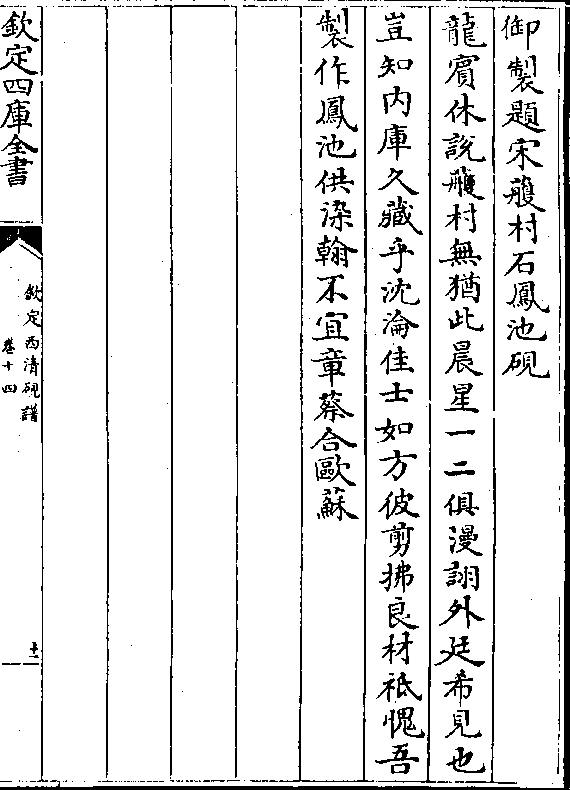 御製題宋䕶村石鳳池硯
龍賔休說䕶村無猶此晨星一二俱漫詡外廷希見也
豈知内庫久藏乎沈淪佳士如方彼剪拂良材祗愧吾
製作鳳池供染翰不宜章蔡合歐蘇
欽定四庫全書
欽定西清硯譜
卷十四
十二